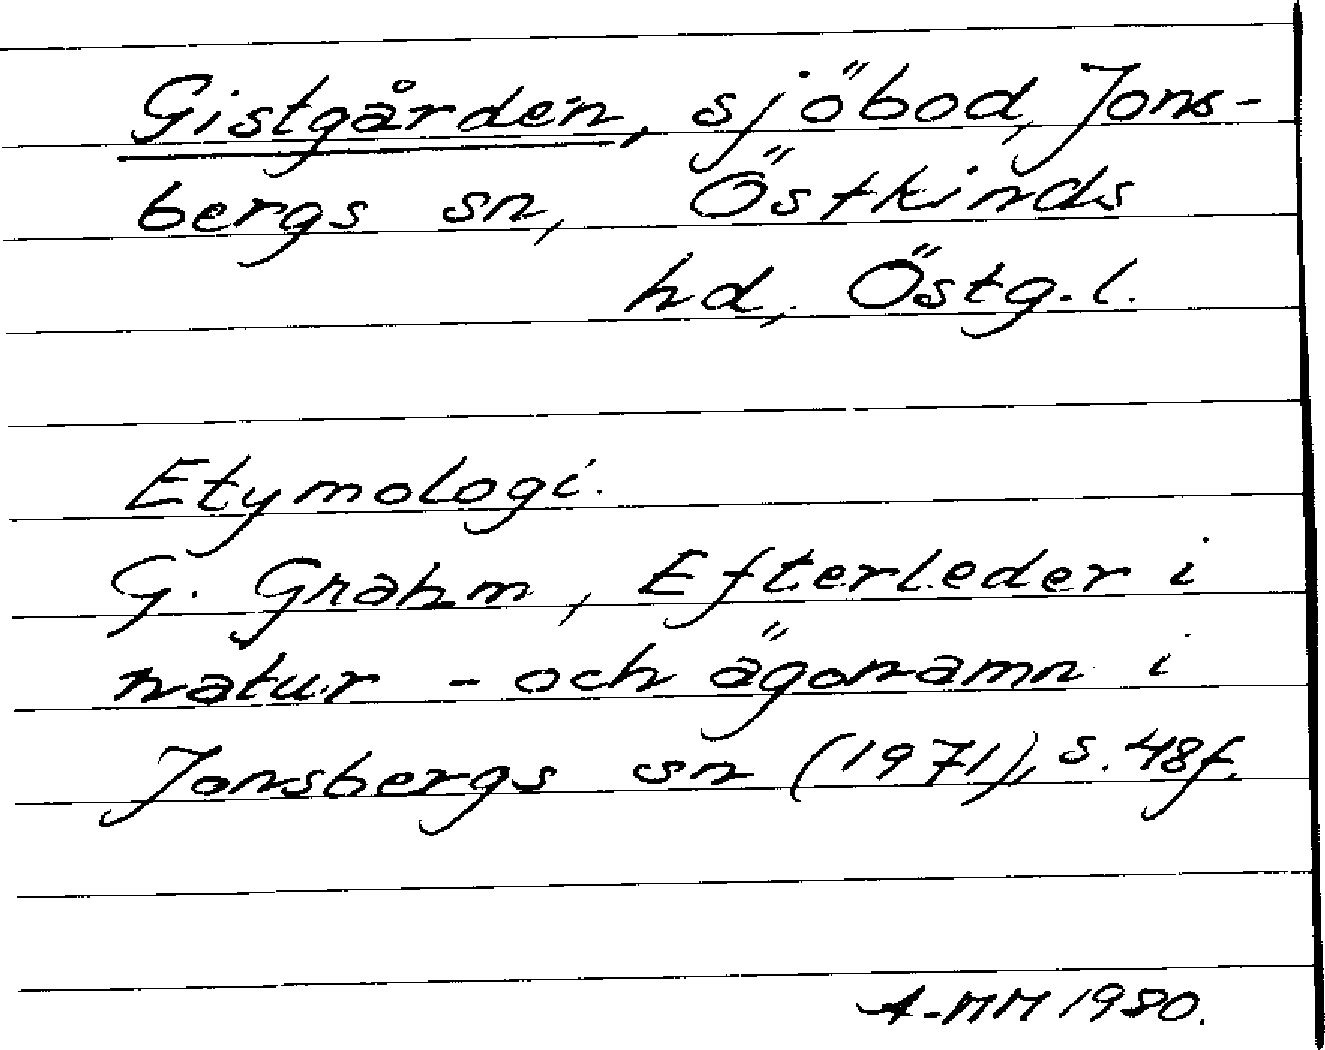 Gistgården, sjöbod, Jons-
bergs sn, Östkinds
hd, Östg.l.
Etymologi.
G. Grahm, Efterleder i
natur- och ägonamn i
Jonsbergs sn (1971), s. 48f.
A-MM 1980.